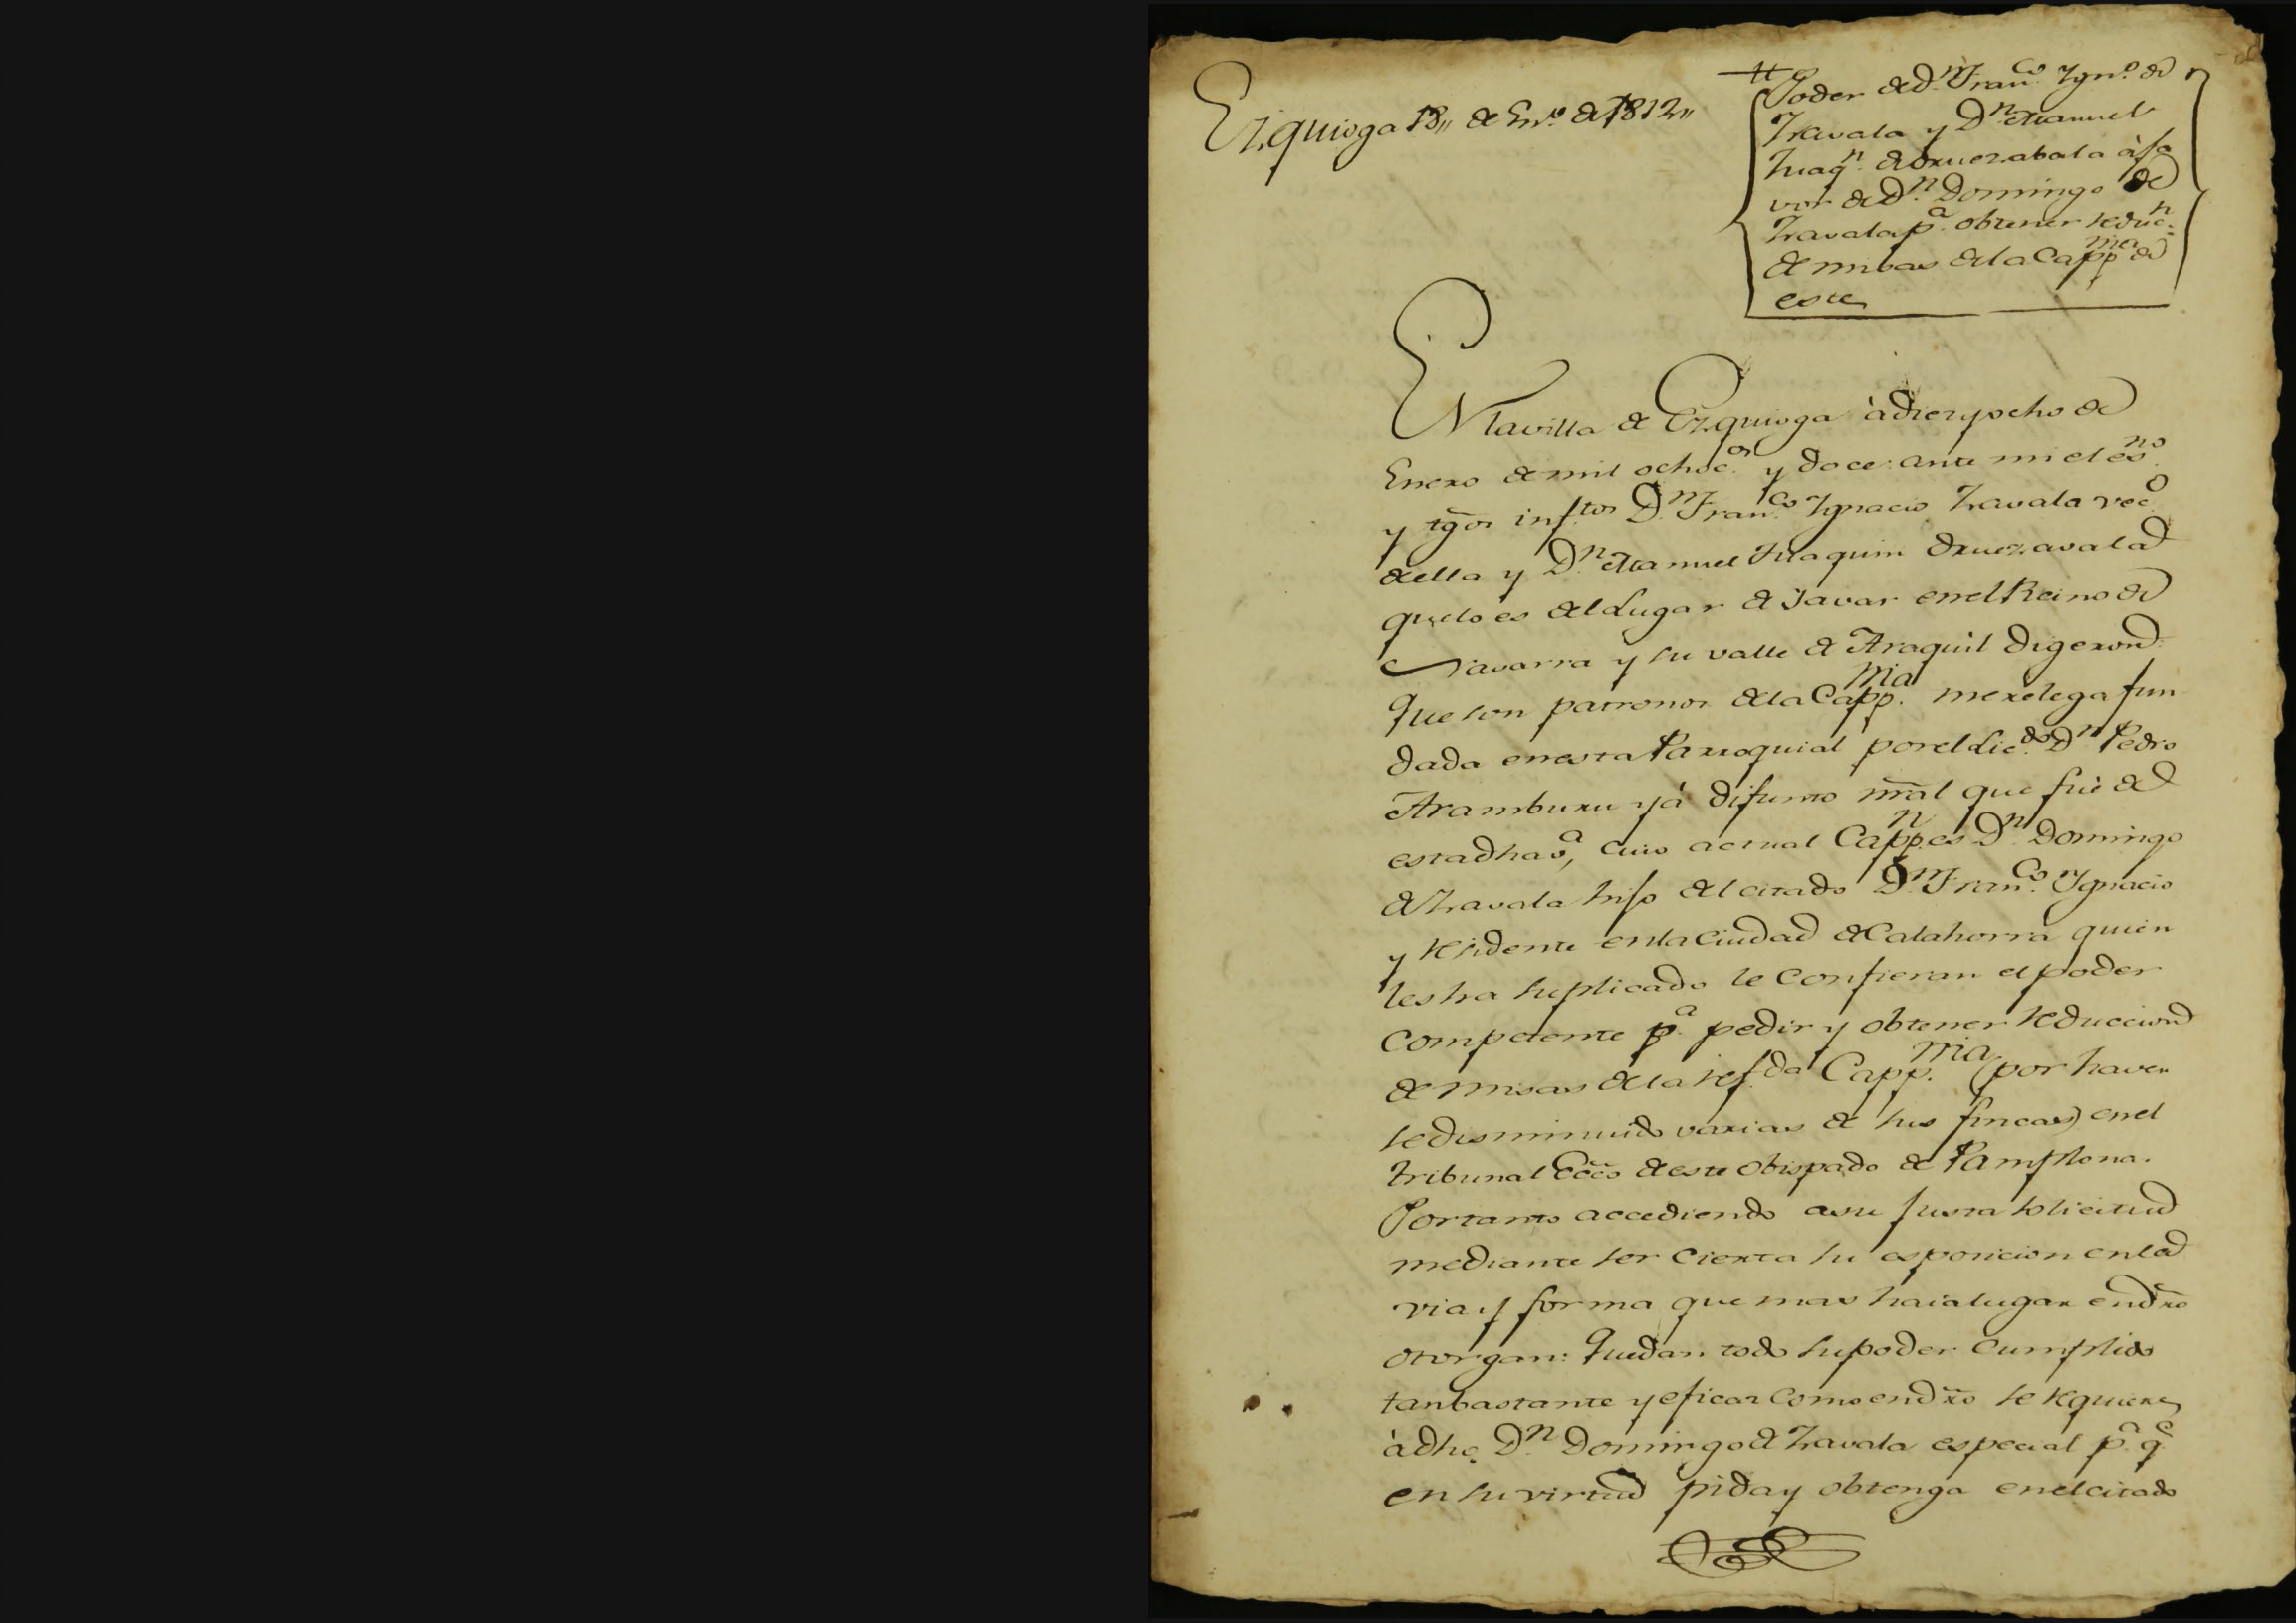 Ezquioga 18,, de En.º de 1812,,
Poder de D.n Fran.co Ygn.º de
Zavala y D.n Manuel
Juaq.n de Oruezabala à fa
vor de D.n Domingo de
Zavala p.a obtener reduc.n
de misas de la Capp.nia de
este
EN la villa de Ezquioga à diez y ocho de
Enero de mil ochoc.os y doce: ante mi el es.no
y tgōs inf.tos D.n Fran.co Ygnacio Zavala vec.o
de ella y D.n Manuel Juaquin Oruezavala
que lo es del Lugar de Yavar en el Reino de
Navarra y su valle de Araquil digeron:
Que son patronos de la Capp.nia merelega fun
dada en esta Parroquial por el Lic.do D.n Pedro
Aramburu yá difunto nr̄al que fué de
esta dha v.a, cuio actual Capp.n es D.n Domingo
de Zavala hijo del citado D.n Fran.co Ygnacio
y residente en la Ciudad de Calahorra quien
les ha suplicado le confieran el poder
competente p.a pedir y obtener reduccion
de misas de la ref.da Capp.nia (por haver
se disminuido varias de sus fincas) en el
tribunal Ecc̄o de este Obispado de Pamplona.
Por tanto accediendo a su justa solicitud
mediante ser cierta su esposicion en la
via y forma que mas haia lugar en dr̄o
otorgan: Que dan todo su poder cumplido
tan bastante y eficaz como en dr̄o se requiere
à dho D.n Domingo de Zavala especial p.a q.e
en su virtud pida y obtenga en el citado